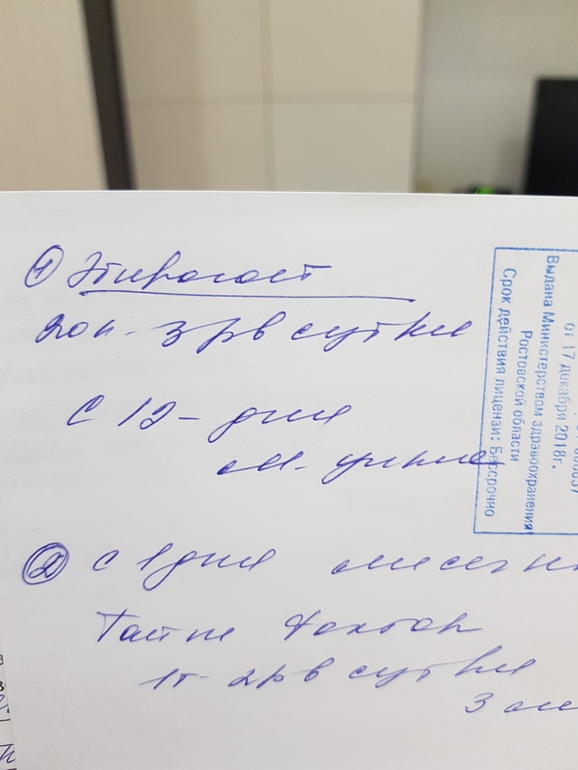 ①
20к - 3 р в сутки
С 12 - дня
м. цикла
② с 1 дня месячн
Тайм Фактор
1т - 2р в сутки
3 м
от 17 декабря 2018г.
Выдана Министерством здравоохранения
Ростовской области
Срок действия лицензи: Бессрочно